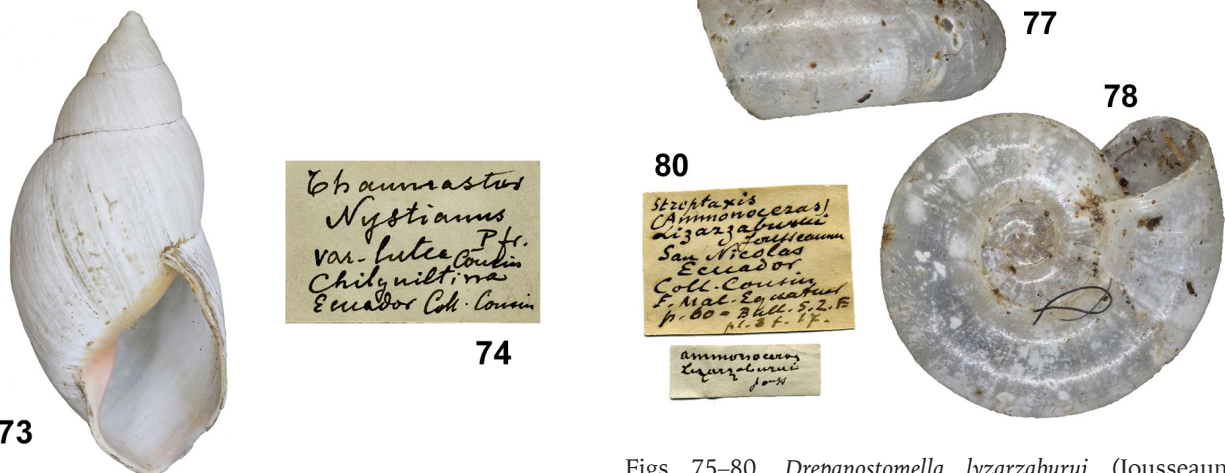 73
Thaumastus
Nystianus
Pfr.
var. lutea Cousin
Chilquiltina
Ecuador Coll. Cousin
74
77
78
80
Streptaxis
(Ammonoceras)
Lizarzaburui
Jousseaume
San Nicolas
Ecuador
Coll. Cousin
F. Mal. Equateur
p. 60 = Bull. S. Z. F.
pl. 3 f. 17.
Ammonoceras
Lyzarzaburui
Jouss
Figs 75–80. Drepanostomella lyzarzaburui (Jousseaum